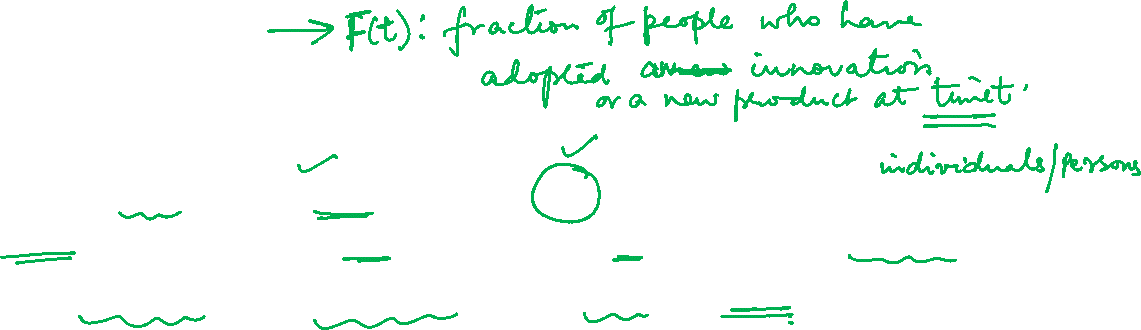 → F(t): fraction of people who have
adopted innovation
or a new product at time t.
individuals/persons